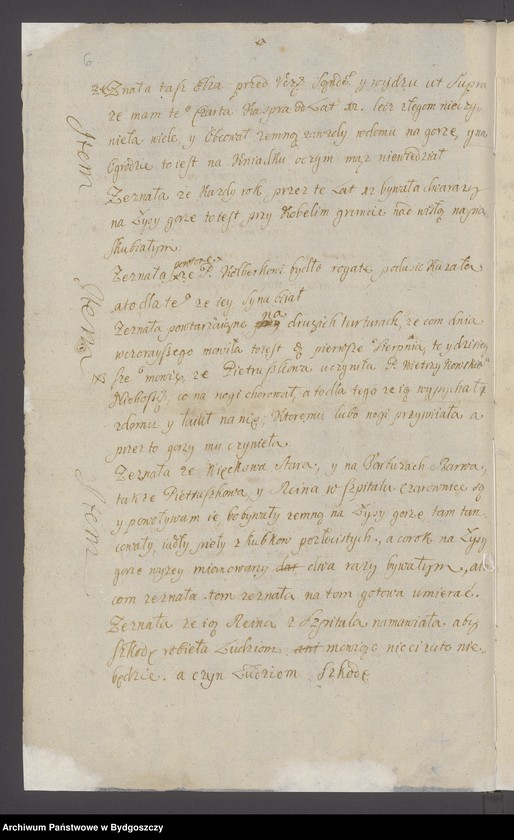 6
Zeznała taż Elza przed Urzę Sądow y wójdzu ut Supra
że mam te° Czarta Kaspra do Lat 12. lecz złegom nieczy
nieła wiele, y Obcował zemną zawzdy w domu na górze, y na
Ogrodzie to iest na Kniadku oczym mąz niewiedział
Item
Zeznała ze Kazdy rok przez te Lat 12 bywała dwarazy
na Łysy gorze to iest przy Kobelim grancie nad wisłą na
Skubiałym
Zeznała ze P. Kolberkowi bydło rogate
a to dla te° ze iey Syna biał
Item
Zeznała powtarzaiące na drugich turturach, ze com dnia
wczorayszego mowiła to iest pierwsze Sierpnia, te y dzisiey
sze° mowię, ze Pietruszkowa uczyniła P. Wietrzykowskie
Nieboszcz, co na nogi chorował, a to dla tego ze ią wypychał
zdomu y łaiał na nię, Ktoremu lubo nogi przywiiała a
przez to gorzy mu czynieła.
Zeznała ze Więckowa Stara, y na Konturach Barwa,
także Pietruszkowa, y Reina w szpitalu czarownice są
y powoływam ie, bo bywały zemną na Łysy gorze tam tan
cowały, iadły, pieły z kubkow pozłocistych, a co rok na Łysy
Item
gorze wyzey mianowany dwa razy bywałym,
com zeznała tom zeznała na tom gotowa umierać.
Zeznała ze ią Reina z Szpitala namawiała aby
Szkodę robieła Ludziom mowiąc nieci zato nie
będzie. a czyn Ludziom Szkodę
Archiwum Państwowe w Bydgoszczy